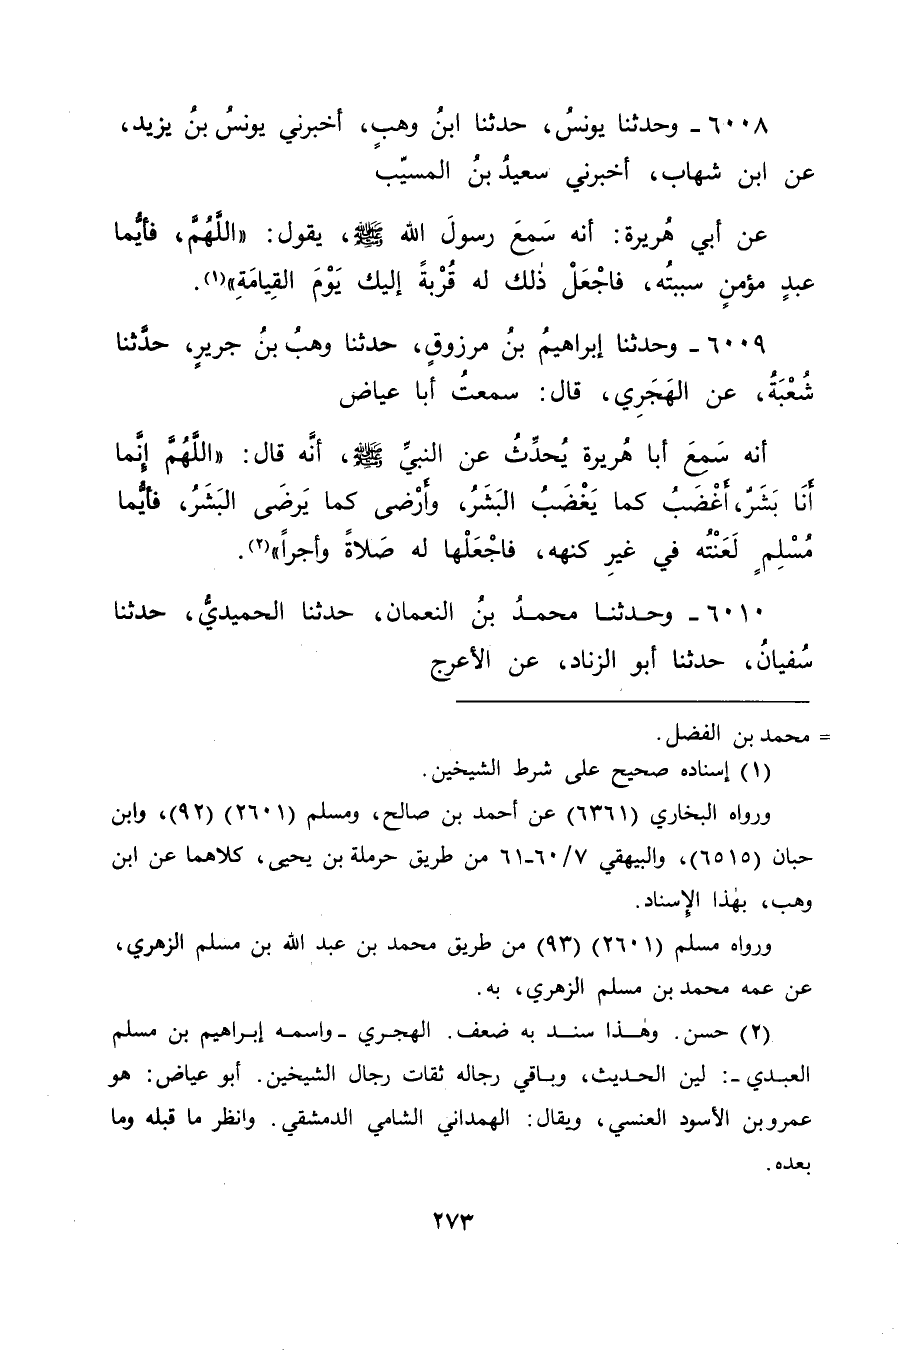 ٦٠٠٨ ـ وحدثنا يونسُ، حدثنا ابنُ وهبٍ، أخبرني يونسُ بنُ يزيد،
عن ابن شهاب، أخبرني سعيدُ بنُ المسيّب
عن أبي هُريرة: أنه سَمِعَ رسولَ الله ﷺ، يقول: «اللَّهُمَّ، فأيُّما
عبدٍ مؤمنٍ سببتُه، فاجْعَلْ ذٰلك له قُرْبةً إليك يَوْمَ القِيامَةِ»(١).
٦٠٠٩ ـ وحدثنا إبراهيمُ بنُ مرزوقٍ، حدثنا وهبُ بنُ جريرٍ، حدَّثنا
شُعْبَةُ، عن الهَجَرِي، قال: سمعتُ أبا عياض
أنه سَمِعَ أبا هُريرة يُحدِّثُ عن النبيِّ ﷺ، أنَّه قال: «اللَّهُمَّ إنَّما
أَنَا بَشَرٌ، أَغْضَبُ كما يَغْضَبُ البَشَرُ، وأَرْضى كما يَرضَى البَشَرُ، فأيُّما
مُسْلِمٍ لَعَنْتُه في غيرِ كنهه، فاجْعَلْها له صَلاةً وأجراً»(٢).
٦٠١٠ ـ وحدثنا محمدُ بنُ النعمان، حدثنا الحميديُّ، حدثنا
سُفيانُ، حدثنا أبو الزناد، عن الأعرج
= محمد بن الفضل.
(١) إسناده صحيح على شرط الشيخين.
ورواه البخاري (٦٣٦١) عن أحمد بن صالح، ومسلم (٢٦٠١) (٩٢)، وابن
حبان (٦٥١٥)، والبيهقي ٧/ ٦٠ـ٦١ من طريق حرملة بن يحيى، كلاهما عن ابن
وهب، بهٰذا الإسناد.
ورواه مسلم (٢٦٠١) (٩٣) من طريق محمد بن عبد الله بن مسلم الزهري،
عن عمه محمد بن مسلم الزهري، به.
(٢) حسن. وهٰذا سند به ضعف. الهجري ـ واسمه إبراهيم بن مسلم
العبدي ـ: لين الحديث، وباقي رجاله ثقات رجال الشيخين. أبو عياض: هو
عمرو بن الأسود العنسي، ويقال: الهمداني الشامي الدمشقي. وانظر ما قبله وما
بعده.
٢٧٣